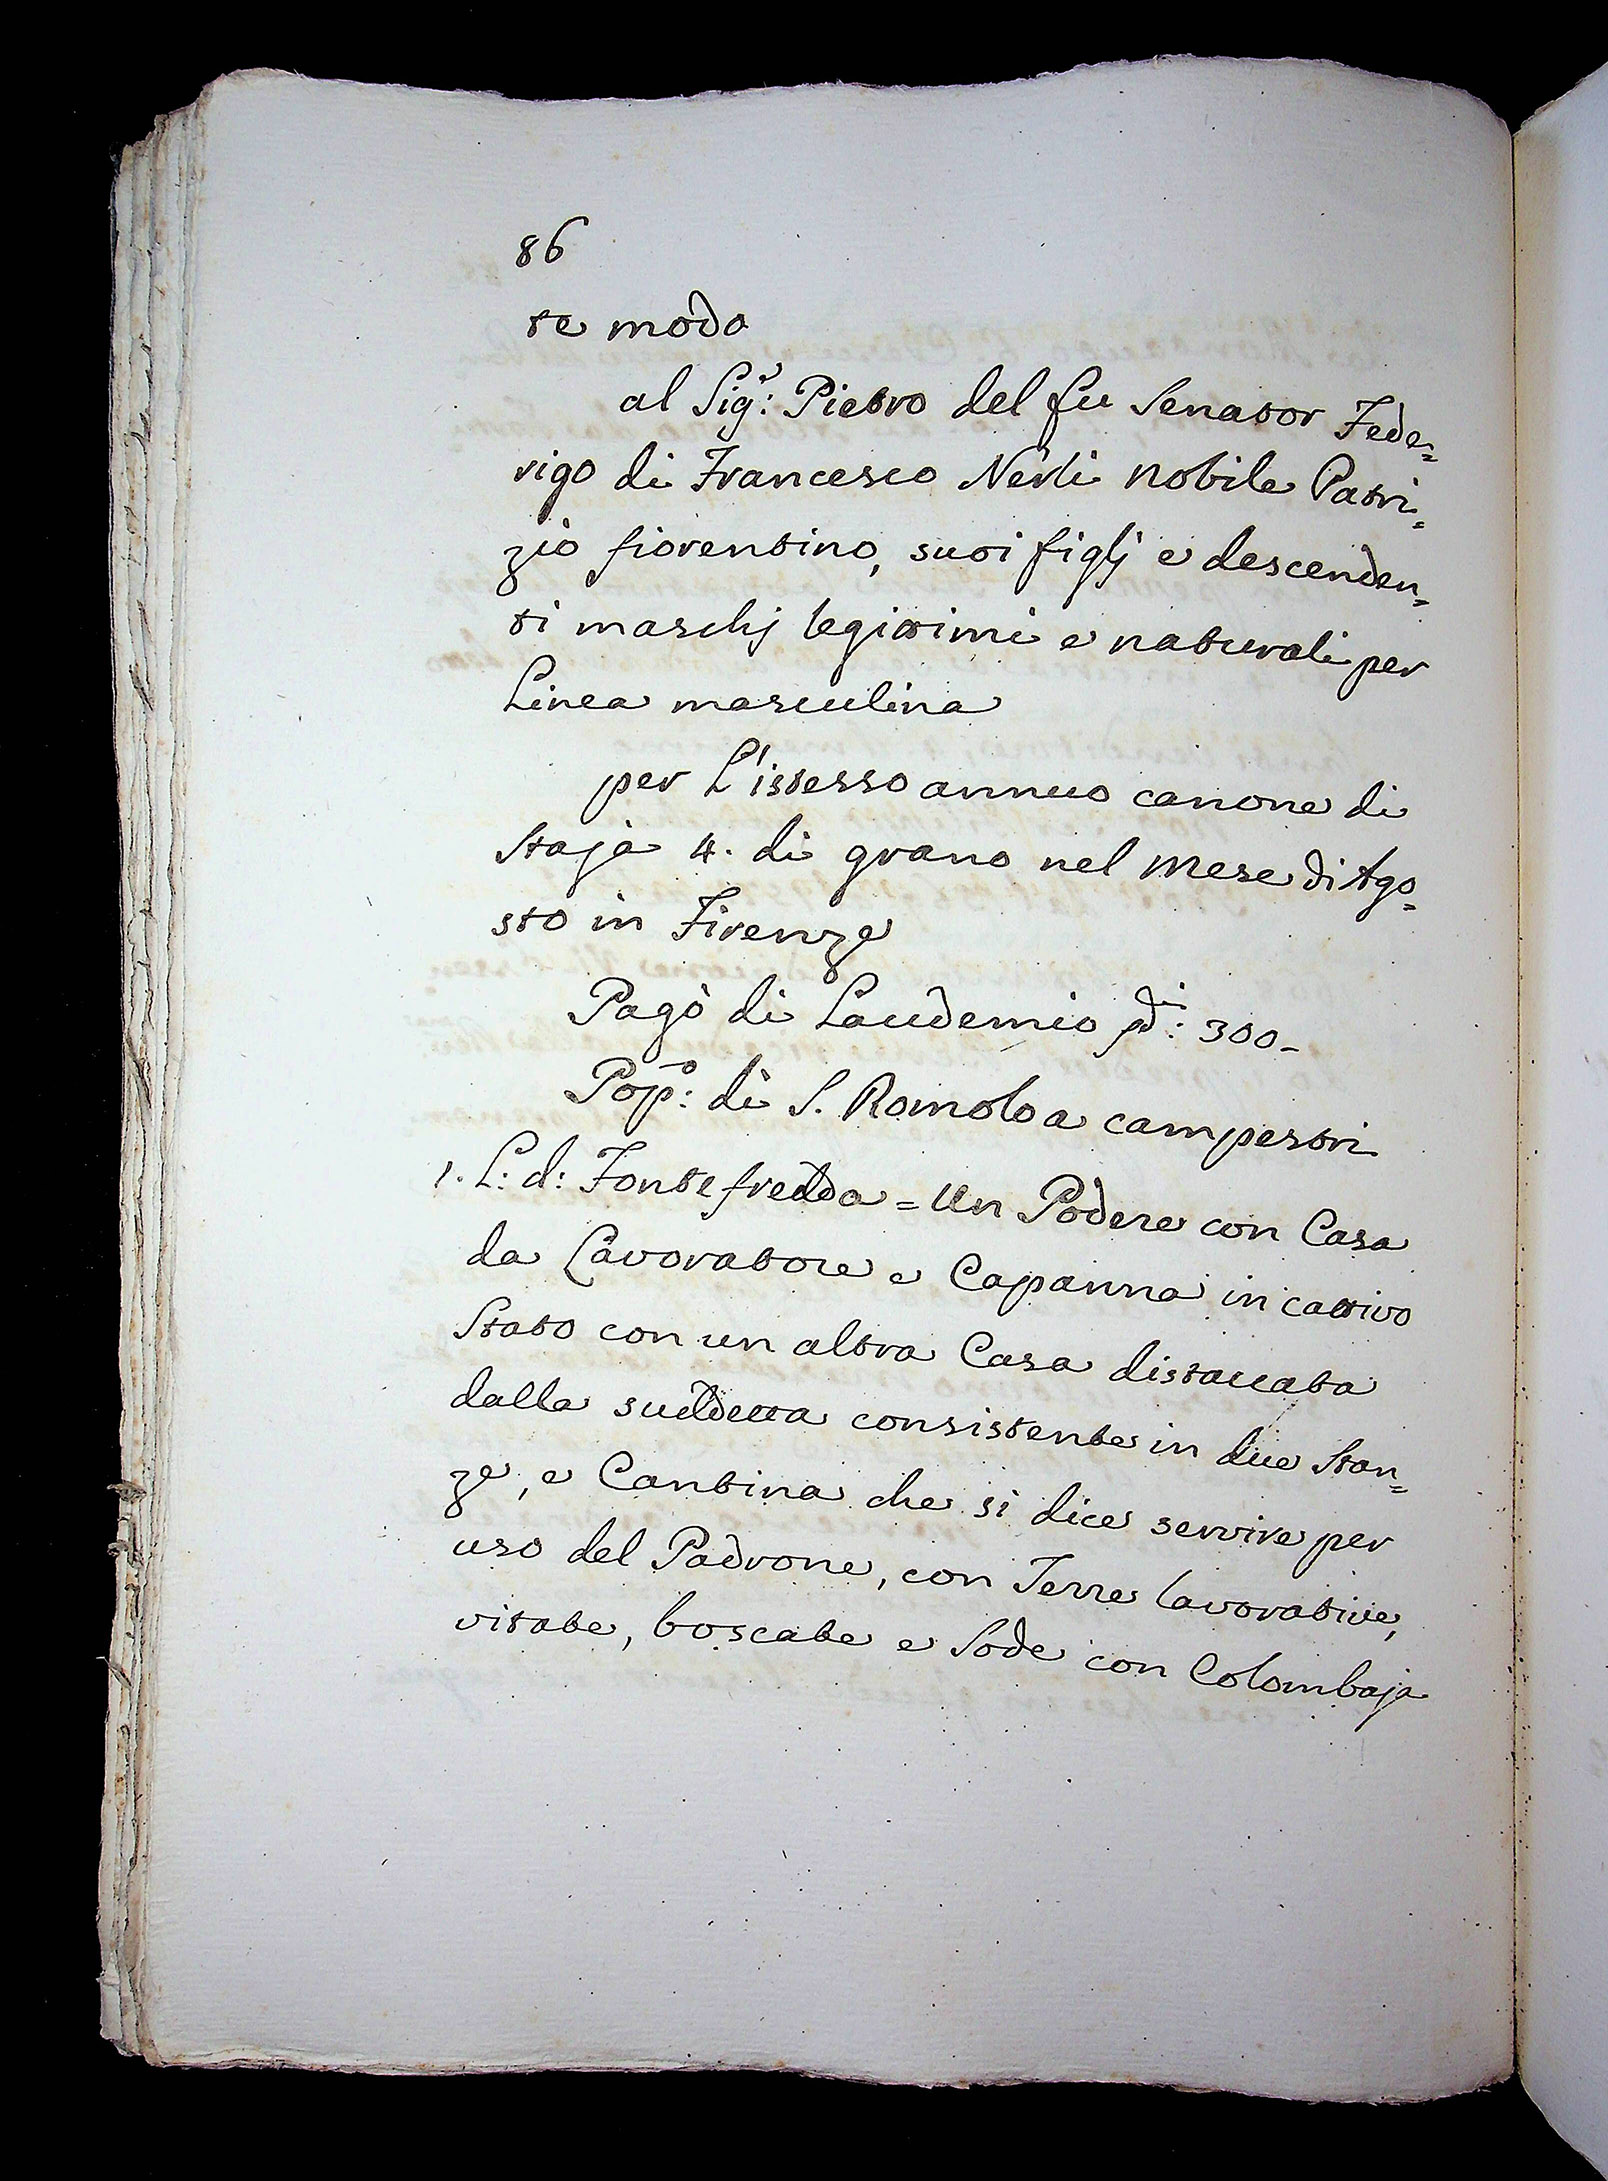 86
te modo
al Sig.r: Pietro del fu Senator Fede=
rigo di Francesco Nerli Nobile Patri=
zio fiorentino, suoi figlj e descenden=
ti maschj legittimi e naturali per
Linea masculina
per L'istesso annuo canone di
Staja 4. di grano nel Mese di Ago=
sto in Firenze
Pagò di Laudemio di: 300_
Pop.o: di S. Romolo a campestri
1. L: d: Fontefredda = Un Podere con Casa
da Lavoratore e Capanna in cattivo
Stato con un altra Casa distaccata
dalla suddetta consistente in due Stan=
ze, e Cantina che si dice servire per
uso del Padrone, con Terre lavorative,
vitate, boscate e Sode con Colombaja